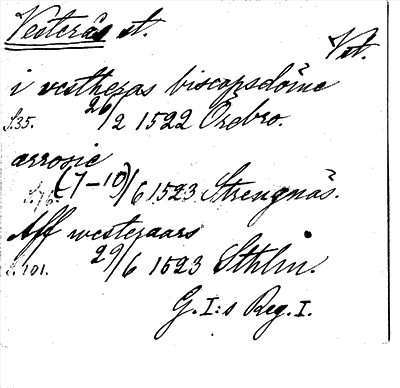 Vesterås st.
Vst.
i vestheras biscopsdöme
S. 35. 26/2 1522 Örebro.
arrosie
S. 76. (7-10)/6 1523 Strengnäs.
Aff westeraars
S. 101. 29/6 1523 Sthlm.
G. I:s Reg. I.